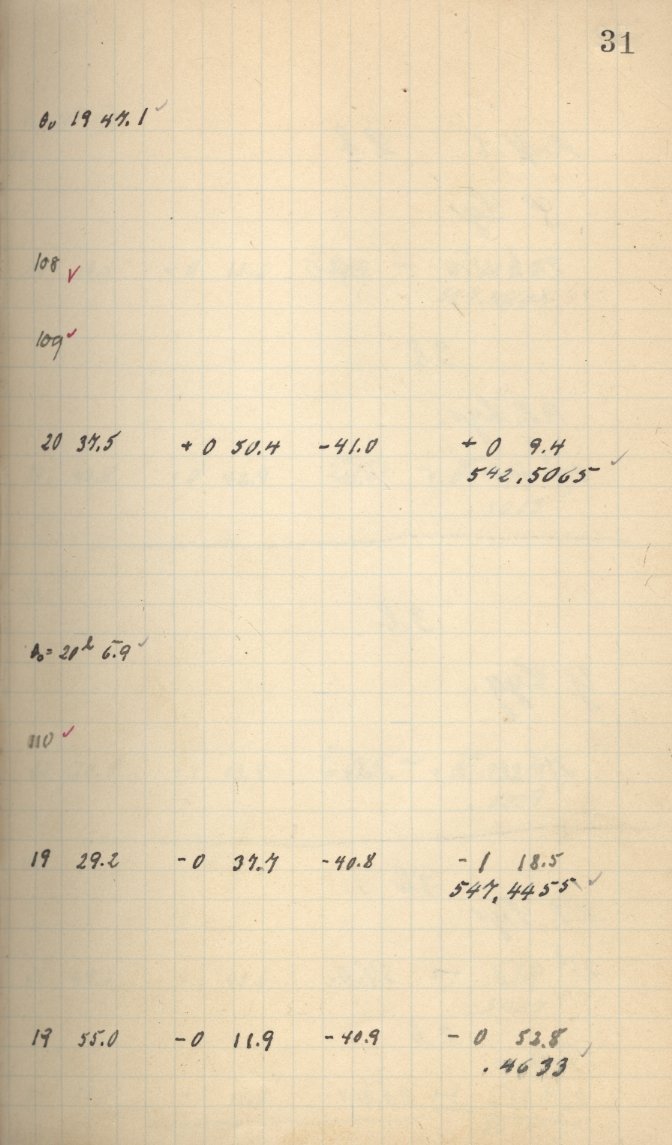 31
θ₀ 19 47.1 ✓
108 ✓
109 ✓
20 37.5 + 0 50.4 - 41.0 + 0 9.4
542.5065 ✓
θ₀ = 20ʰ 6.9 ✓
110 ✓
19 29.2 - 0 37.7 - 40.8 - 1 18.5
547.4455 ✓
19 55.0 - 0 11.9 - 40.9 - 0 52.8
.4633 ✓